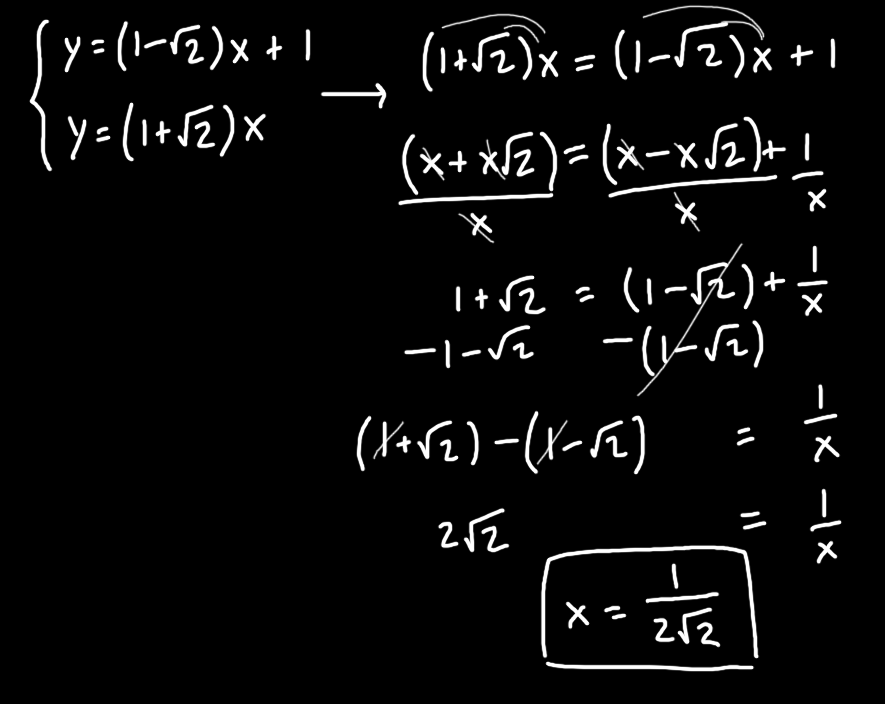 y=(1-√2)x + 1
y=(1+√2)x
⟶ (1+√2)x = (1-√2)x + 1
(x + x√2)/x = (x - x√2)/x + 1/x
1+√2 = (1-√2) + 1/x
-1-√2 -(1-√2)
(1+√2)-(1-√2) = 1/x
2√2 = 1/x
x = 1/(2√2)